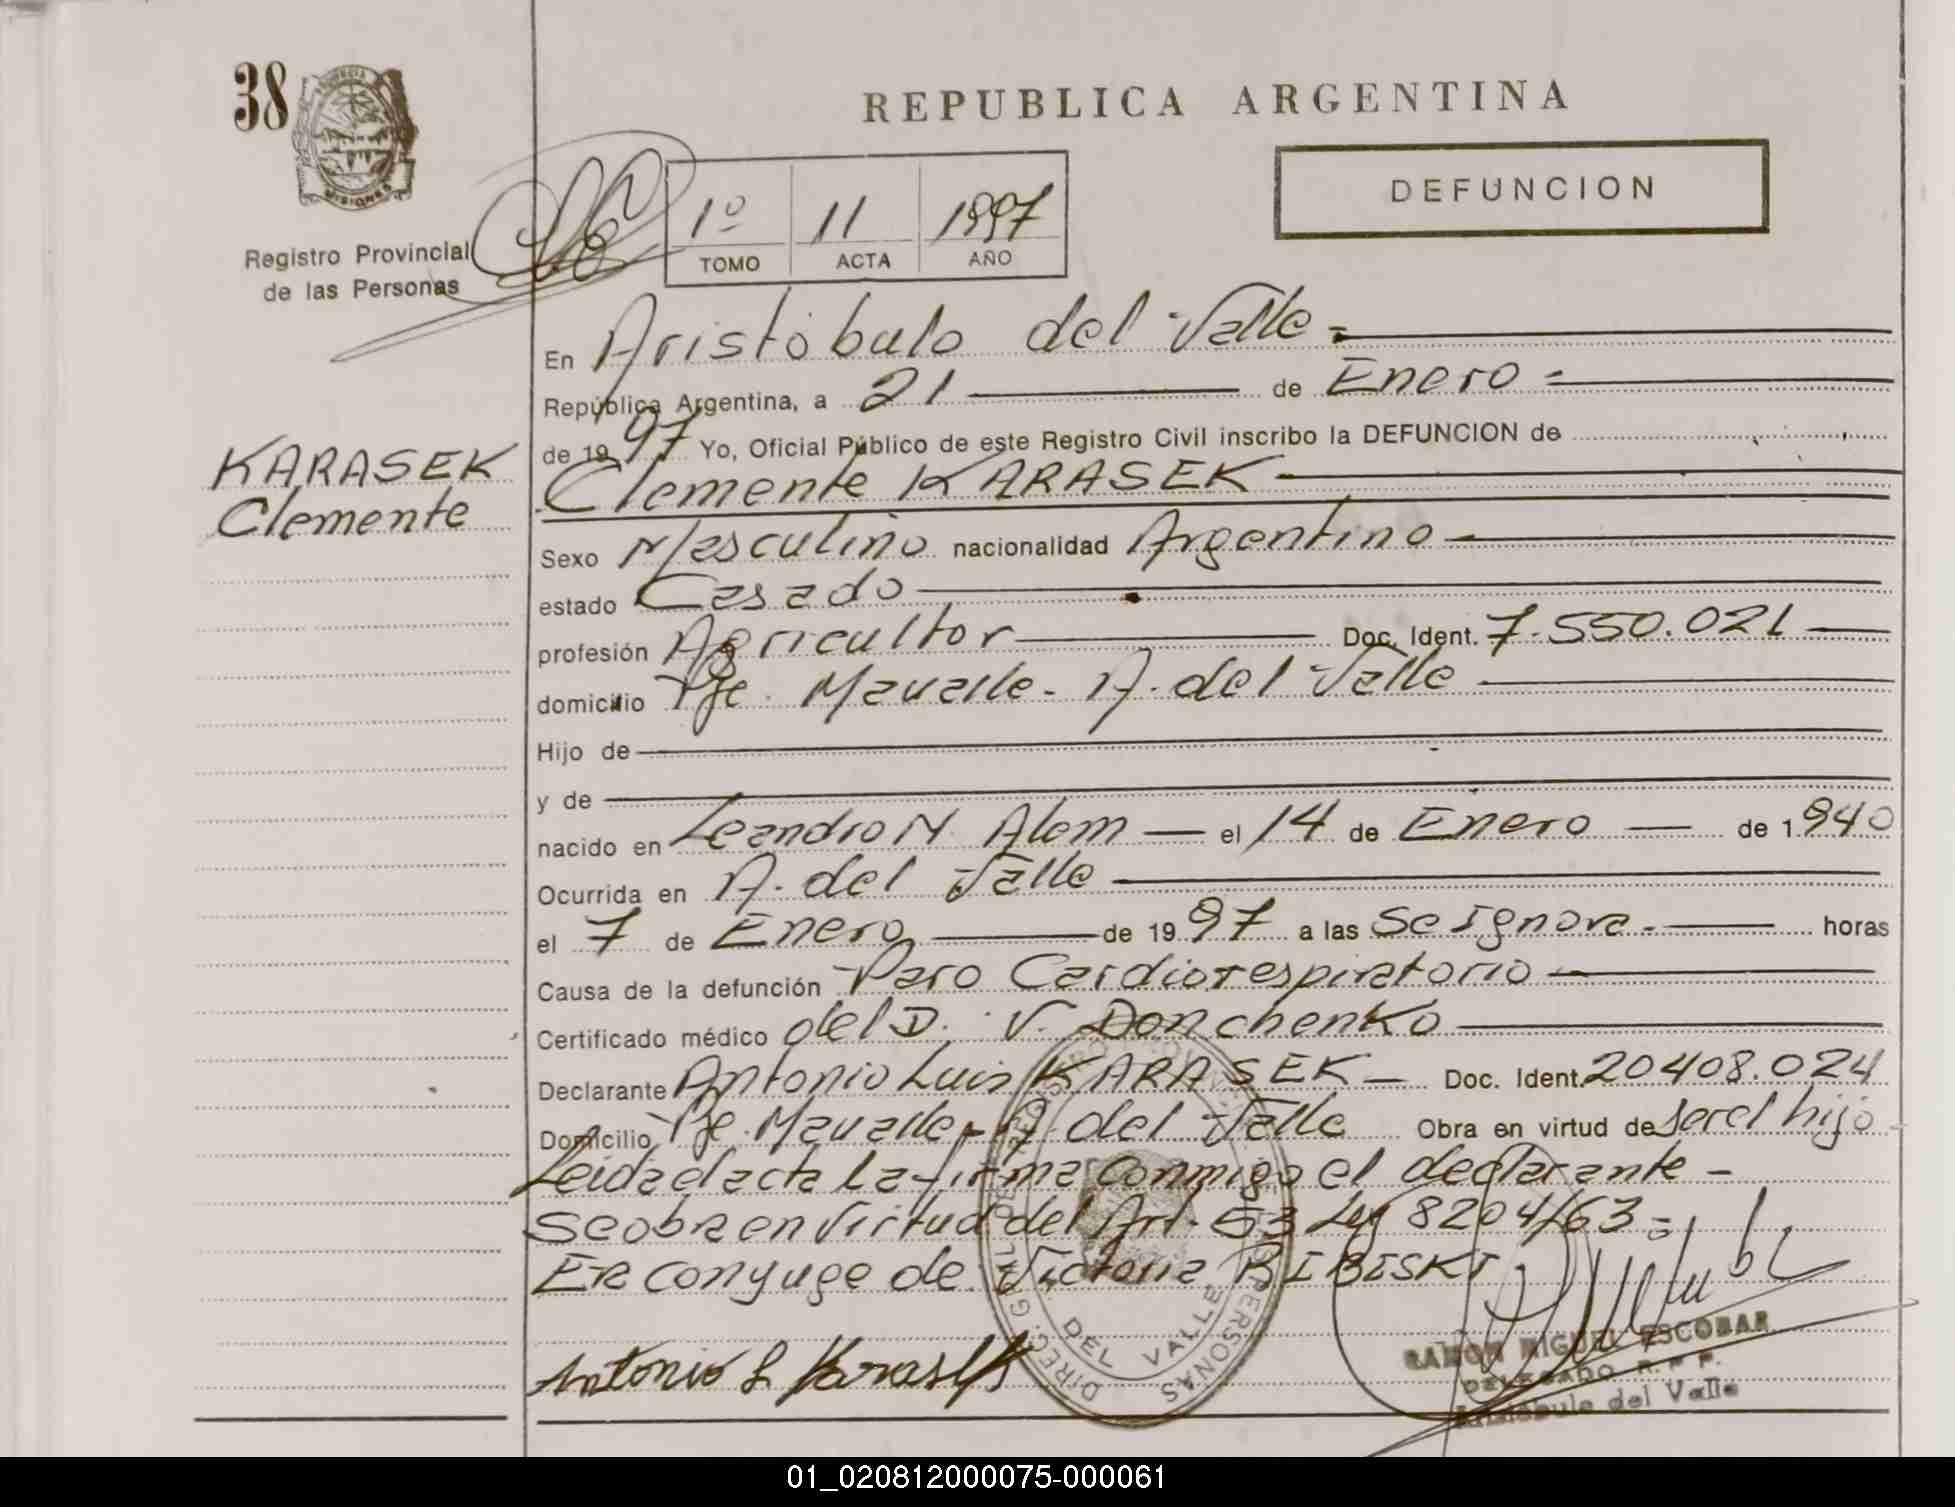 38
MISIONES
Registro Provincial
de las Personas
REPUBLICA ARGENTINA
1º 11 1997
TOMO ACTA AÑO
DEFUNCION
KARASEK
Clemente
En Aristóbulo del Valle.
República Argentina, a 21 de Enero
de 1997 Yo, Oficial Público de este Registro Civil inscribo la DEFUNCION de
Clemente KARASEK
Sexo Masculino nacionalidad Argentino
estado Casado
profesión Agricultor Doc. Ident. 7.550.021
domicilio Pje. Mavalle - A. del Valle
Hijo de
y de
nacido en Leandro N. Alem el 14 de Enero de 1940
Ocurrida en A. del Valle
el 7 de Enero de 1997 a las Se ignora. horas
Causa de la defunción Paro Cardiorespiratorio
Certificado médico del D. V. Donchenko
Declarante Antonio Luis KARASEK Doc. Ident. 20408.024
Domicilio Pje. Mavalle - A. del Valle Obra en virtud de ser el hijo
Leida el acta la firma conmigo el declarante -
Se obra en virtud del Art. 53 Ley 8204/63 =
Er conyuge de Victoria RIBISKI
Antonio L Karasek
DIREC. GRAL. DEL REGISTRO PROV. DE LAS PERSONAS
DEL VALLE
RAMON MIGUEL ESCOBAR
DELEGADO R.P.P.
Aristóbulo del Valle
01_020812000075-000061